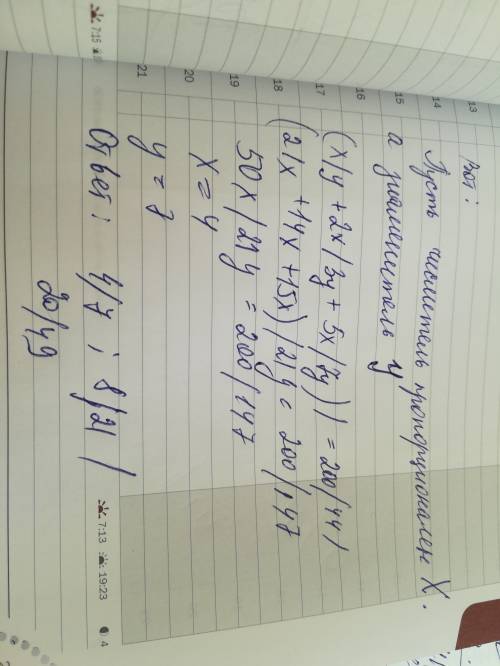 Вот:
Пусть числитель пропорционален X.
а знаменатель y
(x/y + 2x/3y + 5x/7y) = 200/441
(21x + 14x + 15x) / 21y = 200/147
50x / 21y = 200/147
x = 4
y = 7
Ответ: 4/7; 8/21
20/49
13
14
15
16
17
18
19
20
21
7:15
7:13
19:23
4